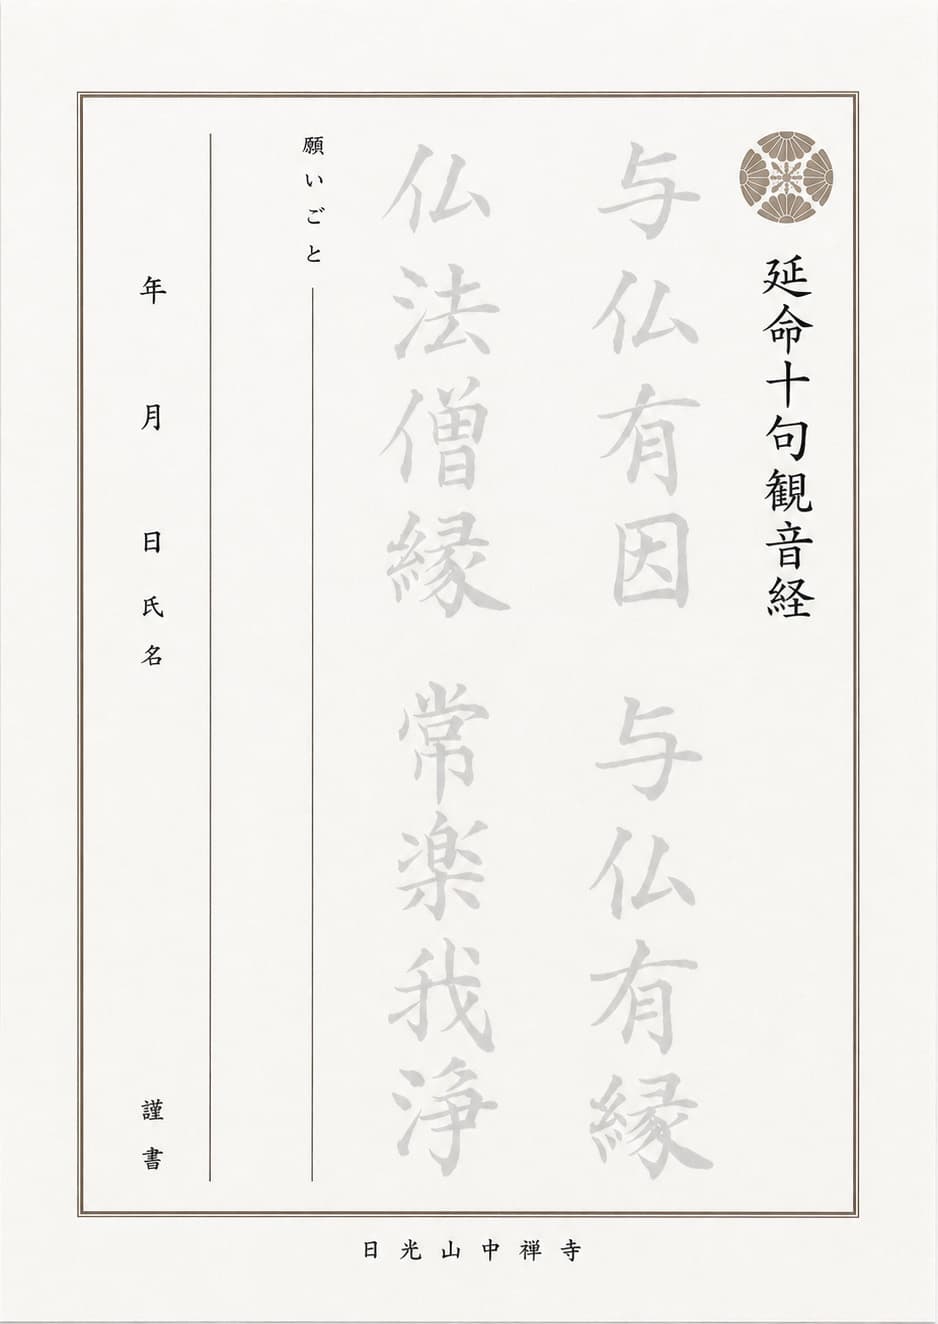 延命十句観音経
与仏有因 与仏有縁
仏法僧縁 常楽我浄
願いごと
年 月 日 氏名 謹書
日光山中禅寺